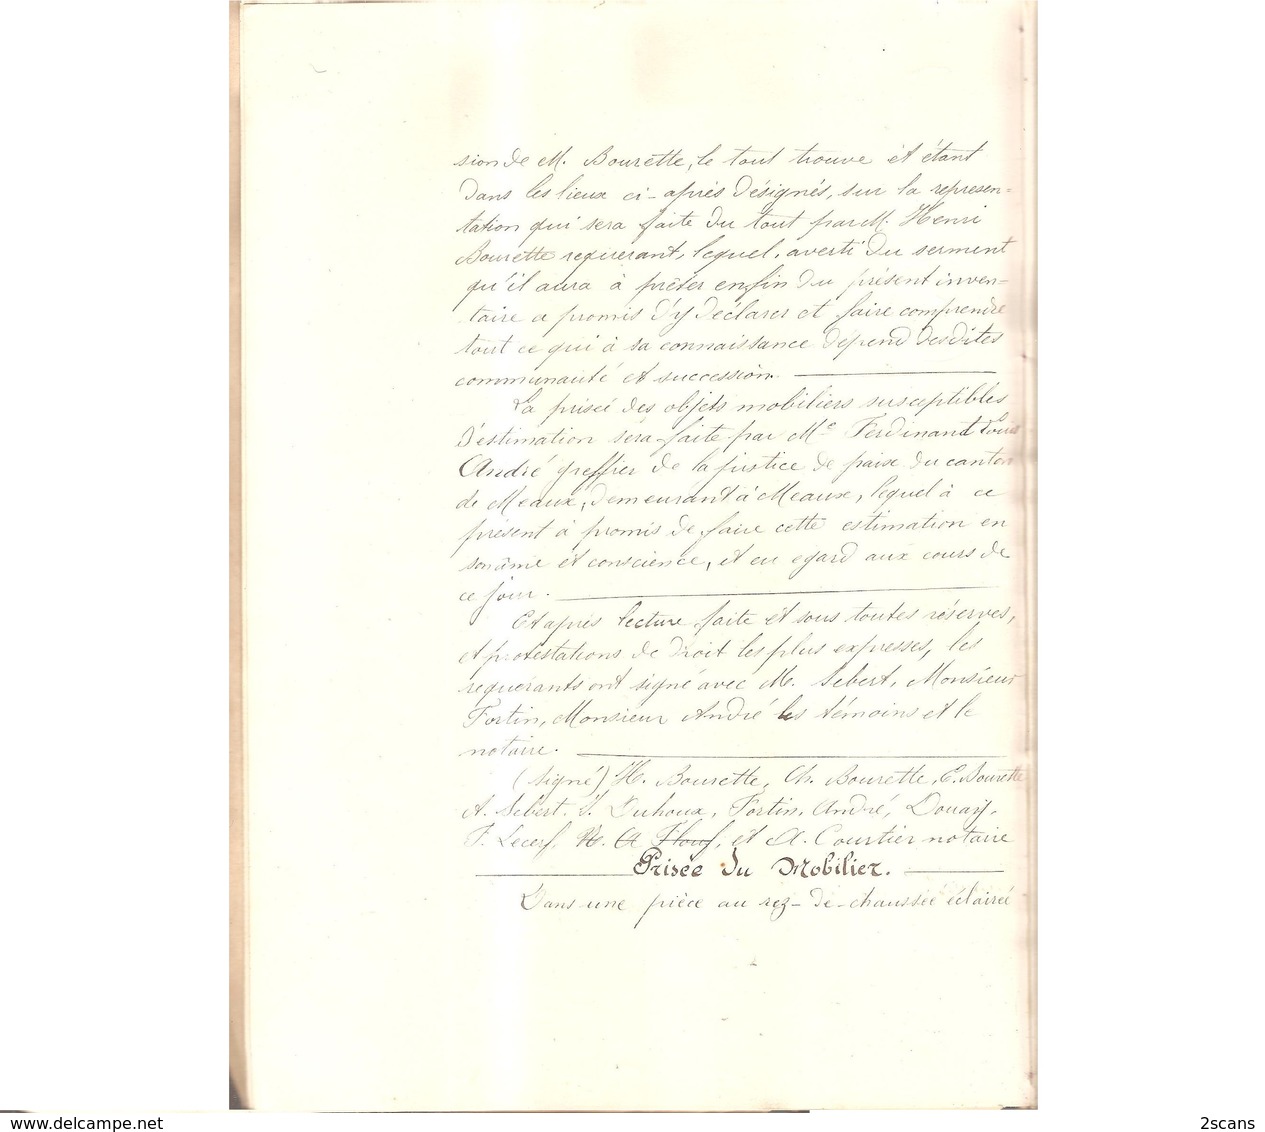 sion de M. Bourette, le tout trouvé et étant
dans les lieux ci-après désignés, sur la représen-
tation qui sera faite du tout par M. Henri
Bourette requérant, lequel, averti du serment
qu'il aura à prêter en fin du présent inven-
taire a promis d'y déclarer et faire comprendre
tout ce qui à sa connaissance dépend desdites
communauté et succession.
La prisée des objets mobiliers susceptibles
d'estimation sera faite par Me Ferdinand Louis
André greffier de la justice de paix du canton
de Meaux, demeurant à Meaux, lequel à ce
présent a promis de faire cette estimation en
son âme et conscience, et eu égard aux cours de
ce jour.
Et après lecture faite et sous toutes réserves,
et protestations de droit les plus expresses, les
requérants ont signé avec M. Sebert, Monsieur
Fortin, Monsieur André les témoins et le
notaire.
(Signé) H. Bourette, Ch. Bourette, E. Bourette
A. Sebert. Duhoux, Fortin, André, Douay,
F. Lecerf, et A. Courtier notaire
Prisée du Mobilier.
Dans une pièce au rez-de-chaussée éclairée
www.delcampe.net
2scans